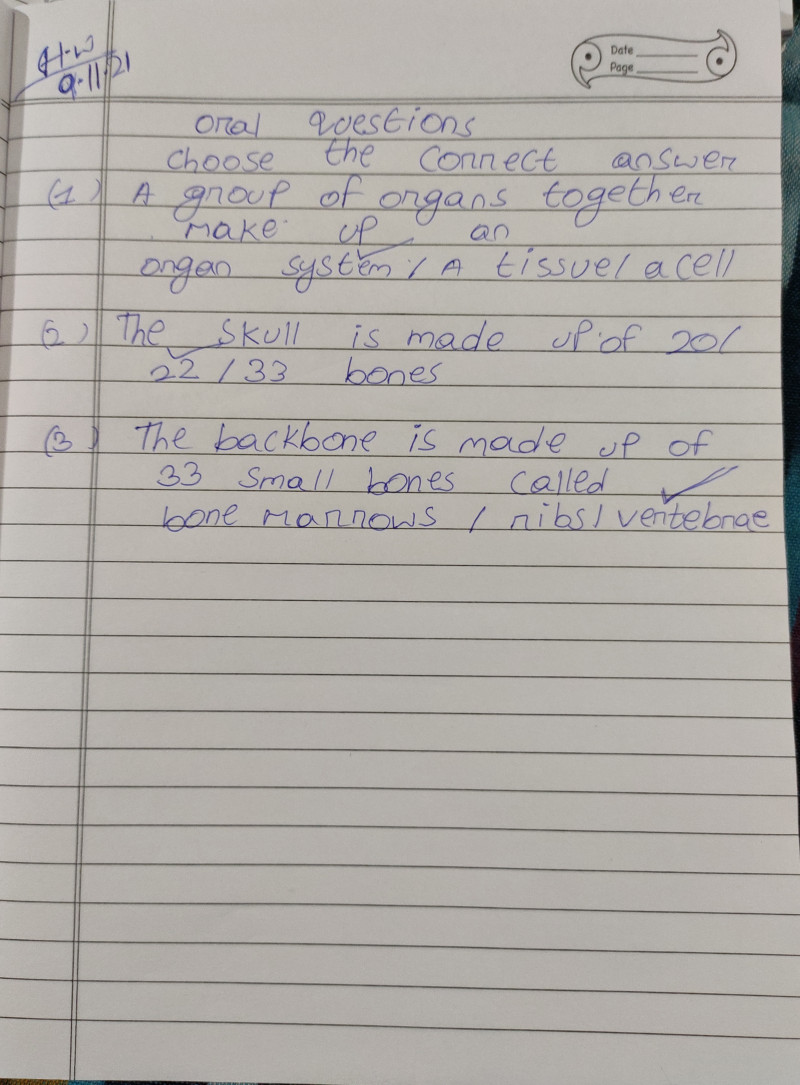 H.W
9.11.21
Date
Page
oral questions
choose the correct answer
(1) A group of organs together
make up an
organ system / A tissue / a cell
(2) The skull is made up of 20/
22 / 33 bones
(3) The backbone is made up of
33 small bones called
bone marrows / ribs / vertebrae